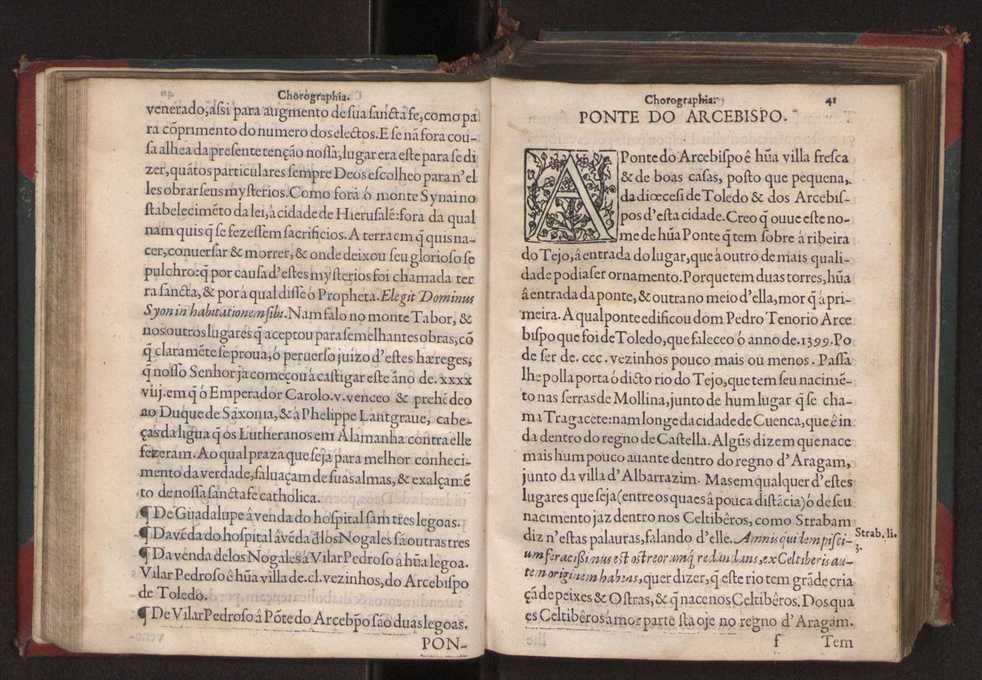 Chorographia.
venerado, assi para augmento de sua sancta fe, como pa
ra cõprimento do numero dos electos. E se nã fora cou-
sa alhea da presente tenção nossa, lugar era este para se di
zer, quãtos particulares sempre Deos escolheo para n'el
les obrar seus mysterios. Como fora ó monte Synai no
stabelecimẽto da lei, â cidade de Hierusalẽ: fora da qual
nam quis q̃ se fezessem sacrificios. A terra em q̃ quis na-
cer, conversar & morrer, & onde deixou seu glorioso se
pulchro: q̃ por causa d'estes mysterios foi chamada ter
ra sancta, & por á qual disse ó Propheta. Elegit Dominus
Syon in habitationem sibi. Nam falo no monte Tabor, &
nos outros lugares q̃ aceptou para semelhantes obras; cõ
q̃ claramẽte se prova, ó perverso juizo d'estes hæreges,
q̃ nosso Senhor ja começou á castigar este ãno de. xxxx
viij. em q̃ ó Emperador Carolo. v. venceo & prehẽdeo
ao Duque de Saxonia, & á Phelippe Lantgrave, cabe-
ças da ligua q̃ ós Lutheranos em Alamanha contra elle
fezeram. Ao qual praza que seja para melhor conheci-
mento da verdade, salvaçam de suas almas, & exalçamẽ
to de nossa sancta fe catholica.
¶ De Guadalupe â venda do hospital sam tres legoas.
¶ Da vẽda do hospital â vẽda dlos Nogales sã outras tres
¶ Da venda delos Nogales â Vilar Pedroso a hũa legoa.
Vilar Pedroso ê hũa villa de. cl. vezinhos, do Arcebispo
de Toledo.
¶ De Vilar Pedroso â Põte do Arcebp̃o são duas legoas.
PON-
Chorographia.
41
PONTE DO ARCEBISPO.
A Ponte do Arcebispo ê hũa villa fresca
& de boas casas, posto que pequena,
da diœcesi de Toledo & dos Arcebis-
pos d'esta cidade. Creo q̃ ouve este no-
me de hũa Ponte q̃ tem sobre á ribeira
do Tejo, â entrada do lugar, que â outro de mais quali-
dade podia ser ornamento. Porque tem duas torres, hũa
â entrada da ponte, & outra no meio d'ella, mor q̃ á pri-
meira. A qual ponte edificou dom Pedro Tenorio Arce
bispo que foi de Toledo, que faleceo ó anno de. 1399. Po
de ser de. ccc. vezinhos pouco mais ou menos. Passa
lhe polla porta ó dicto rio do Tejo, que tem seu nacimẽ-
to nas serras de Mollina, junto de hum lugar q̃ se cha-
ma Tragacete: nam longe da cidade de Cuenca, que ê in
da dentro do regno de Castella. Algũs dizem que nace
mais hum pouco avante dentro do regno d'Aragam,
junto da villa d'Albarrazim. Mas em qualquer d'estes
lugares que seja (entre os quaes â pouca distãcia) ó de seu
nacimento jaz dentro nos Celtibêros, como Strabam
diz n'estas palavras, falando d'elle. Amnis qui dem pisci-
um feracissimus est ostreorumq̃ redundans, ex Celtiberis au-
tem originem habens, quer dizer, q̃ este rio tem grãde cria
çã de peixes & Ostras, & q̃ nace nos Celtibêros. Dos qua
es Celtibêros á mor parte sta oje no regno d'Aragam.
Strab. li.
3.
f
Tem